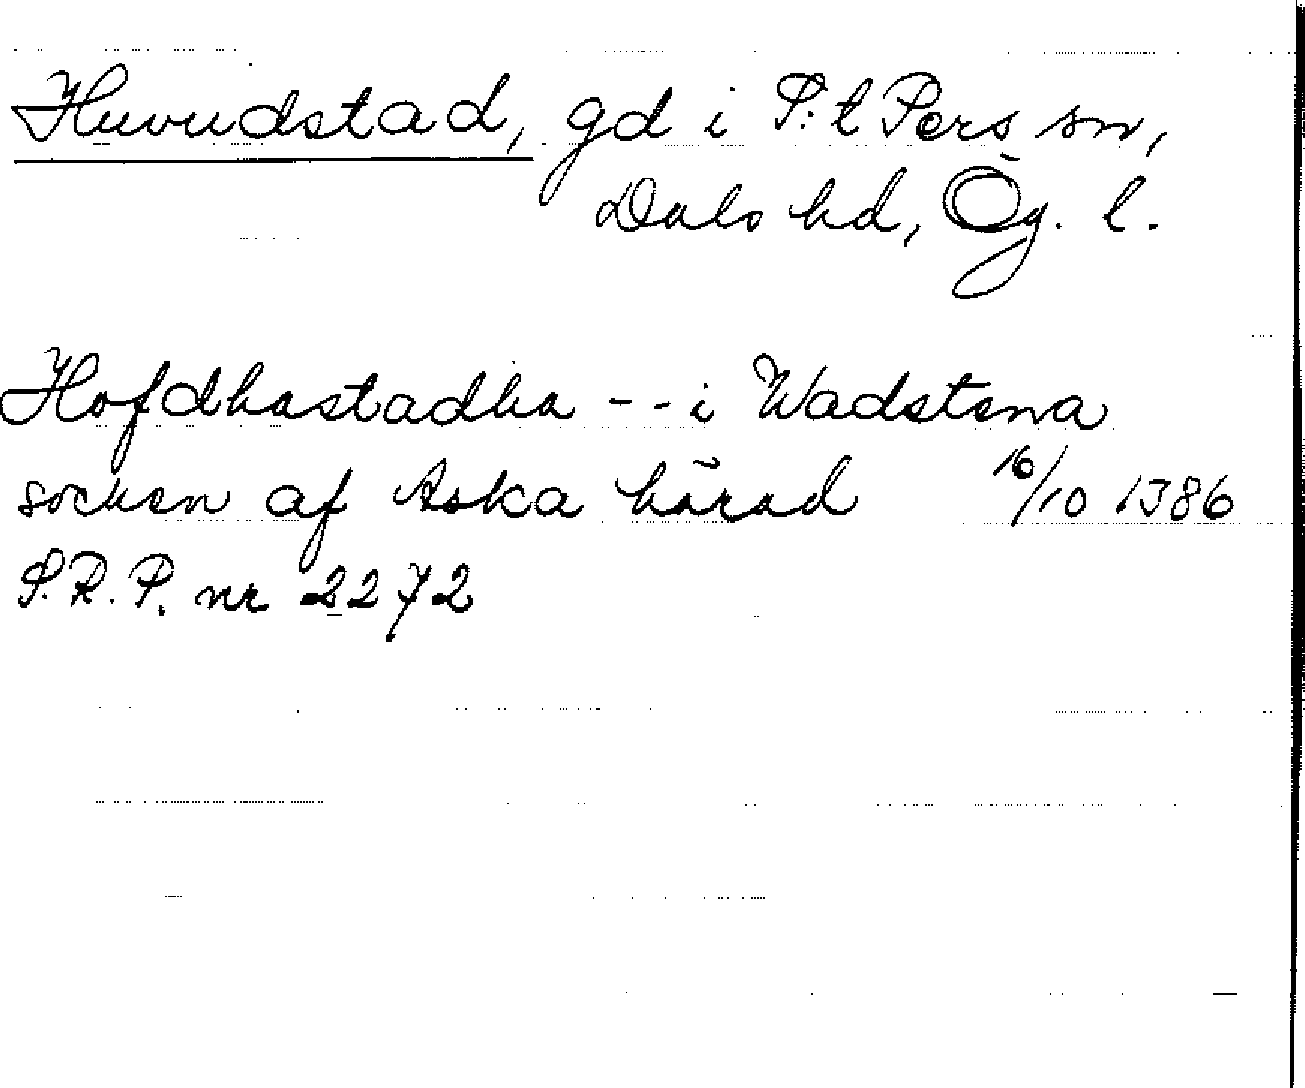 Huvudstad, gd i S:t Pers sn,
Dals hd, Ög. l.
Hofdhastadha - - i Wadstena
socken af Aska härad 16/10 1386
S.R.P. nr 2272